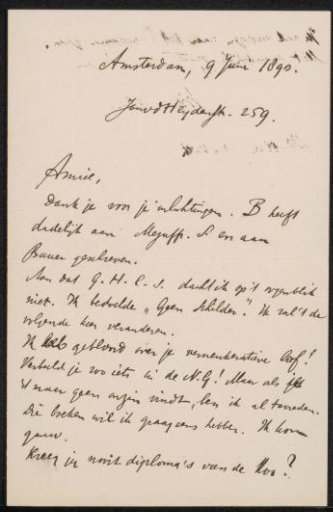 Amsterdam, 9 Juni 1890.
259.
Amice,
Dank je voor je inlichtingen. B heeft
dadelijk aan Mejuffr. S en aan
Bauer geschreven.
Aan dat G. H. L. S. dacht ik op 't oogenblik
niet. Ik bedoelde „Geen Schilder". Ik zal 't de
volgende keer veranderen.
Ik heb gebloosd over je lof!
Verbeeld je zoo iets in de N.G! Maar als je
't maar geen vindt, ben ik al tevreden.
Die boeken wil ik graag eens hebben. Ik kom
gauw.
Kreeg je nooit diploma's van de